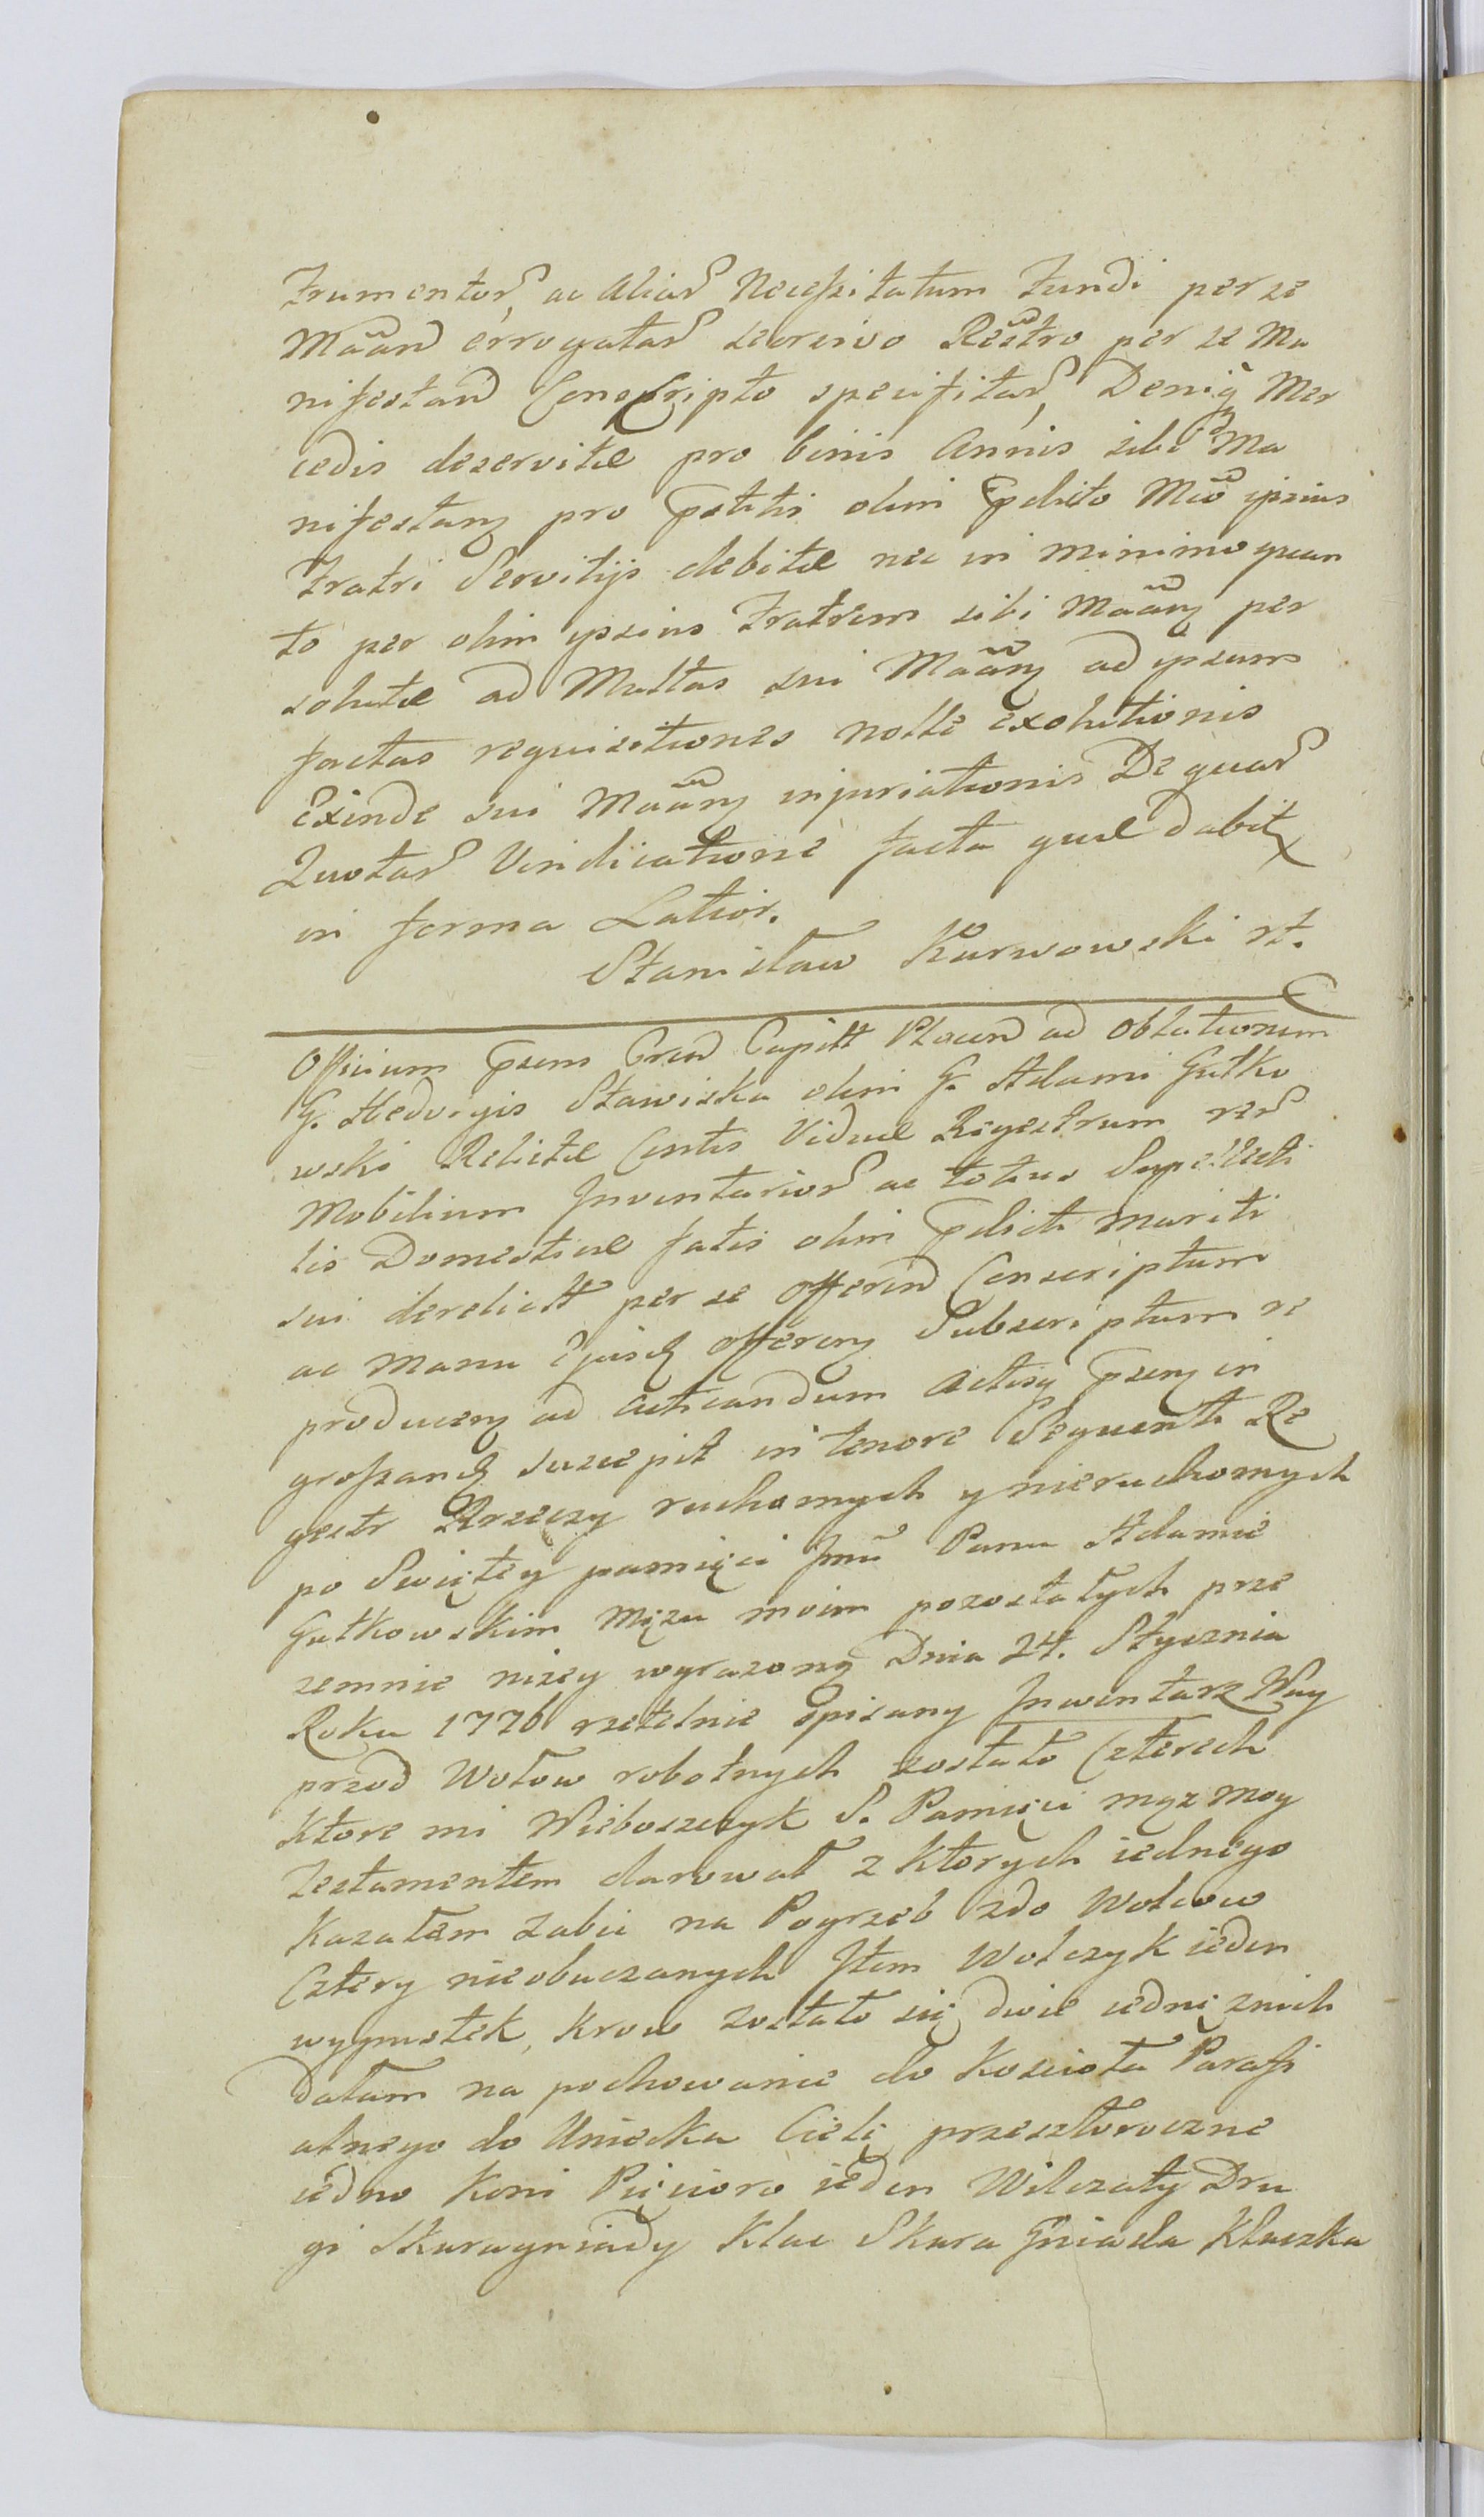 Frumentor, ac aliar Necessitatum Fundi per se
Mãan errogatar seorsivo Rẽstro per se Ma
nifestan Conscripto specifitar, Deniq Mer
cedis deservitæ pro binis Annis sibi Ma
nifestanz pro pstitis olim pdicto Mco ipsius
Fratri Servitijs debitæ nec in minimo quan
to per olim ipsius Fratrem sibi Mãanz per
solutæ ad Multas sui Mãanz ad ipsum
factas requisitiones nolle exolutionis
Exinde sui Mãanz injuriationis De quar
Quotar Vindicatione facta quæ dabit
in forma Latior.
Stanisław Karwowski rt.
Officium psens Cren Capitt Plocen ad oblationem
G. Hedvigis Stawiska olim G. Adami Gutko
wski Relictæ Contis Viduæ Regestrum rer
Mobilium Inventarior ac totius Supellecti
lis Domesticæ fatis olim pdicti mariti
sui derelictt per se offeren Conscriptum
ac manu Ejusd offerenz Subscriptum re
producenz ad acticandum actisq psenz in
grossand suscepit in tenore Sequenti Re
gestr Rzeczy ruchomych y nieruchomych
po Swiętey pamięci Jmć Panu Adamie
Gutkowskim Mężu moim pozostałych prze
zemnie niżey wyrazoną Dnia 24. Stycznia
Roku 1776 rzetelnie spisany Inwentarz Nay
przod Wołow robotnych zostało Czterech
Ktore mi Nieboszczyk S. Pamięci mąz moy
Testamentem darował z ktorych iednego
Kazałam zabić na Pogrzeb 2do Wolcow
Cztery nieobuczanych Item Wolczyk ieden
wypustek, Krow zostało się dwie iednę znich
Dałam na pochowanie do Koscioła Parafi
alnego do Uniecka Cielę przeszłoroczne
iedno Koni Pięcioro ieden Wilczaty Dru
gi Skarogniady Klac Skaro Gniada Klaczka